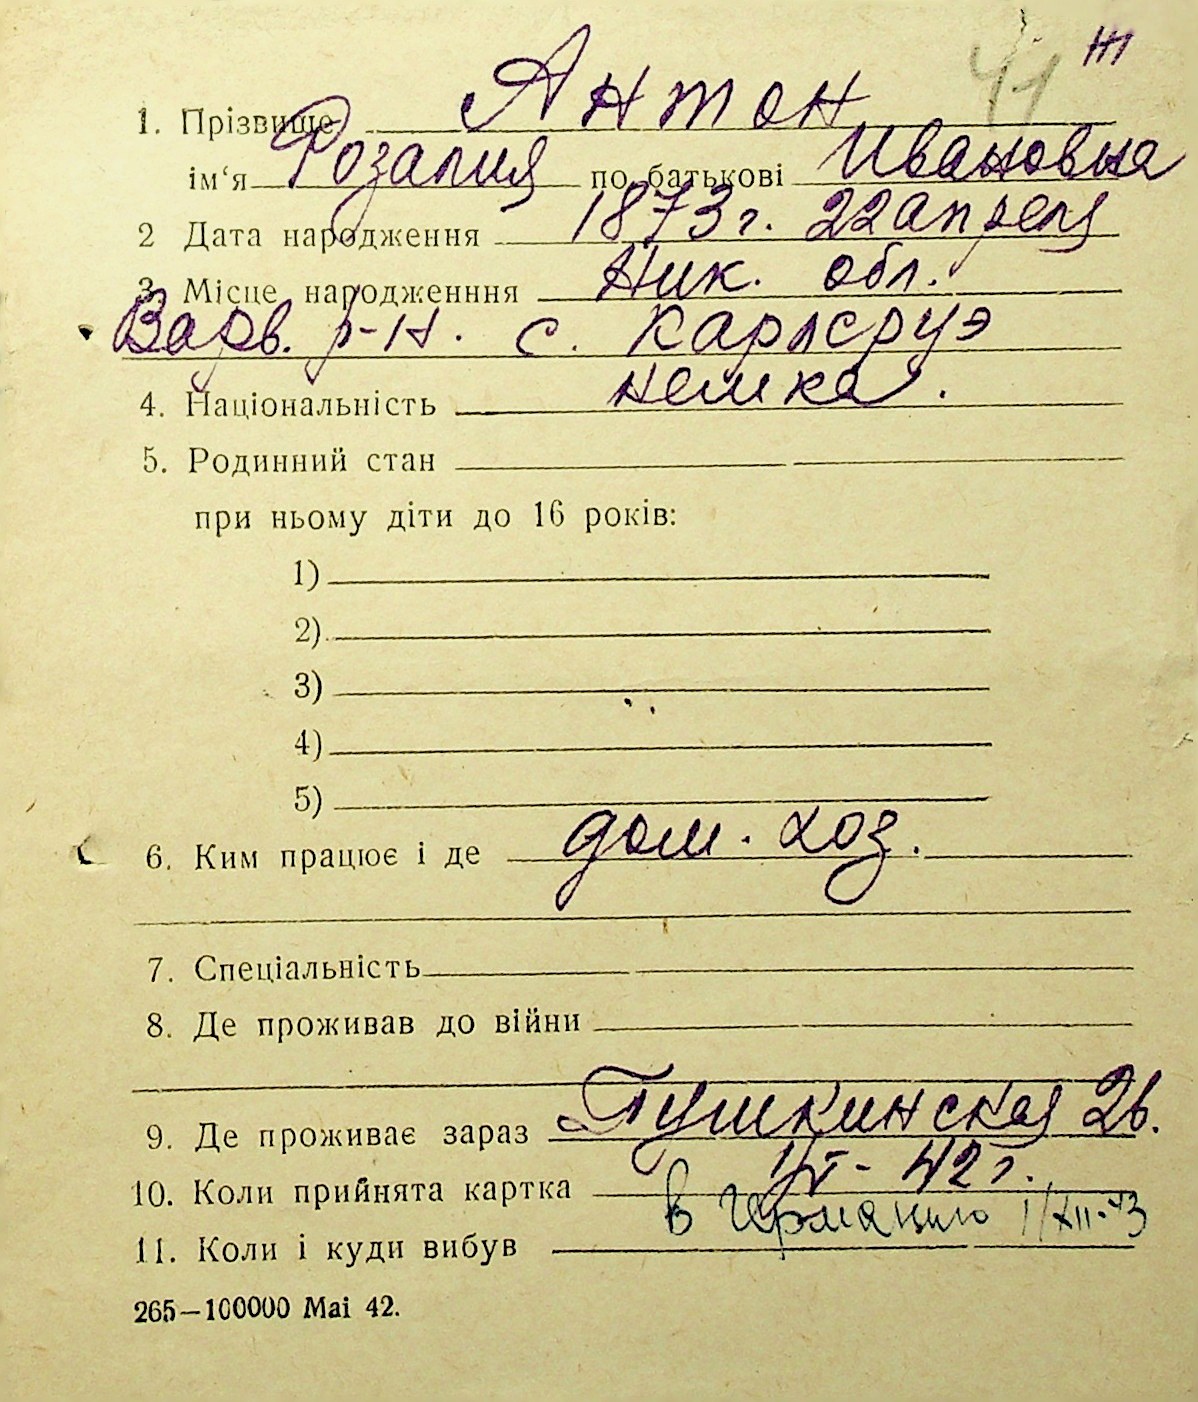 41 Ж1
1. Прізвище Антон
ім‘я Розалия по батькові Ивановна
2 Дата народження 1873 г. 22 апреля
3. Місце народженння Ник. обл.
Варв. р-н. с. Карлсруэ
4. Національність немка.
5. Родинний стан
при ньому діти до 16 років:
1)
2)
3)
4)
5)
6. Ким працює і де дом. хоз.
7. Спеціальність
8. Де проживав до війни
9. Де проживає зараз Пушкинская 26.
10. Коли прийнята картка 42 г.
11. Коли і куди вибув в Германию 1/XII-43
265—100000 Mai 42.